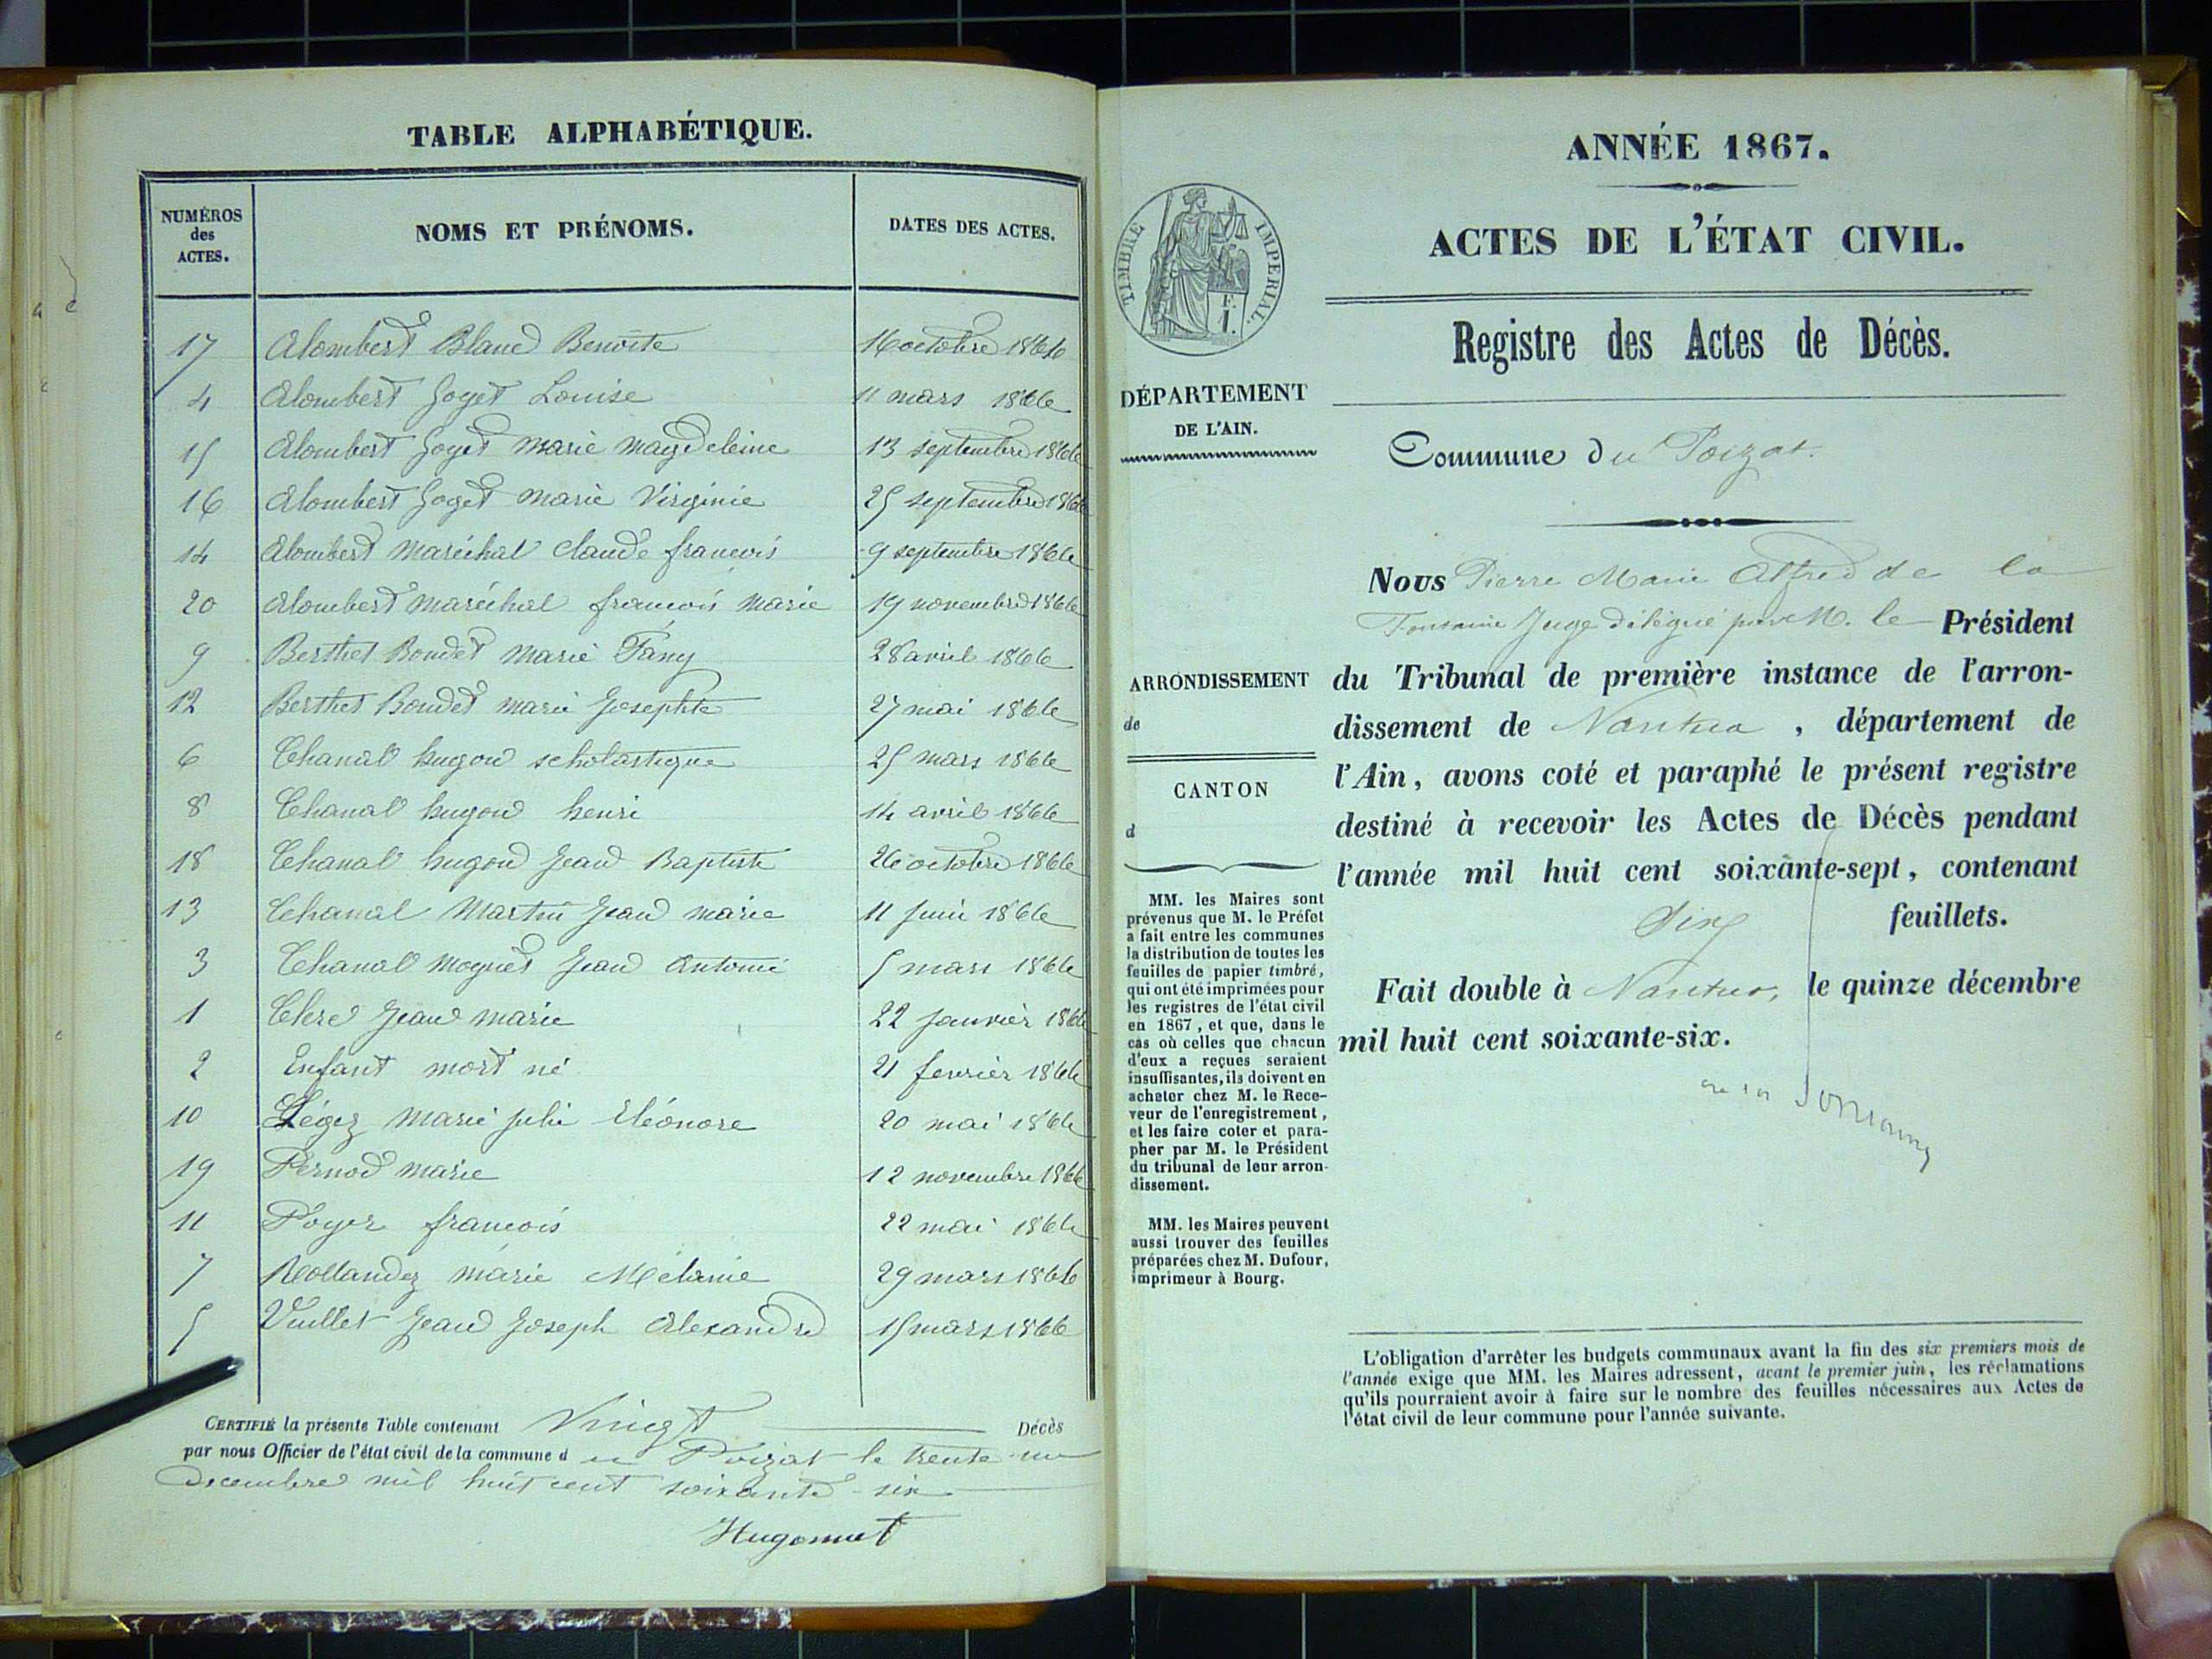 TABLE ALPHABÉTIQUE.
NUMÉROS des ACTES. NOMS ET PRÉNOMS. DATES DES ACTES.
17 Alombert Blanc Benoite 16 octobre 1866
4 Alombert Goyet Louise 11 mars 1866
15 Alombert Goyet marie magdeleine 13 septembre 1866
16 Alombert Goget marie Virginie 25 septembre 1866
14 Alombert maréchal claude francois 9 septembre 1866
20 Alombert maréchal francois marie 19 novembre 1866
9 Berthet Bondet marie Fany 28 avril 1866
12 Berthet Bondet marie Josephte 27 mai 1866
6 Chanal hugon scholastique 25 mars 1866
8 Chanal hugon henri 14 avril 1866
18 Chanal hugon Jean Baptiste 26 octobre 1866
13 Chanal Martin Jean marie 11 Juin 1866
3 Chanal mognet Jean Antoine 5 mars 1866
1 Clerc Jean marie 22 Janvier 1866
2 Enfant mort né 21 fevrier 1866
10 Légez marie julie Eléonore 20 mai 1866
19 Pernod marie 12 novembre 1866
11 Poyer francois 22 mai 1866
7 Rollandez marie Mélanie 29 mars 1866
5 Vuillet Jean Joseph Alexandre 15 mars 1866
CERTIFIÉ la présente Table contenant Vingt Décès
par nous Officier de l'état civil de la commune du Poizat le trente un
decembre mil huit cent soixante-six
Hugonnet
ANNÉE 1867.
ACTES DE L'ÉTAT CIVIL.
TIMBRE IMPERIAL.
1 F.
Registre des Actes de Décès.
DÉPARTEMENT
DE L'AIN.
Commune du Poizat.
Nous Pierre Marie Alfred de la
Fontaine Juge délégué par M. le Président
du Tribunal de première instance de l'arron-
dissement de Nantua, département de
l'Ain, avons coté et paraphé le présent registre
destiné à recevoir les Actes de Décès pendant
l'année mil huit cent soixante-sept, contenant
feuillets.
Fait double à Nantua, le quinze décembre
mil huit cent soixante-six.
ARRONDISSEMENT
de
CANTON
d
MM. les Maires sont
prévenus que M. le Préfet
a fait entre les communes
la distribution de toutes les
feuilles de papier timbré,
qui ont été imprimées pour
les registres de l'état civil
en 1867, et que, dans le
cas où celles que chacun
d'eux a reçues seraient
insuffisantes, ils doivent en
acheter chez M. le Rece-
veur de l'enregistrement,
et les faire coter et para-
pher par M. le Président
du tribunal de leur arron-
dissement.
MM. les Maires peuvent
aussi trouver des feuilles
préparées chez M. Dufour,
imprimeur à Bourg.
L'obligation d'arrêter les budgets communaux avant la fin des six premiers mois de
l'année exige que MM. les Maires adressent, avant le premier juin, les réclamations
qu'ils pourraient avoir à faire sur le nombre des feuilles nécessaires aux Actes de
l'état civil de leur commune pour l'année suivante.